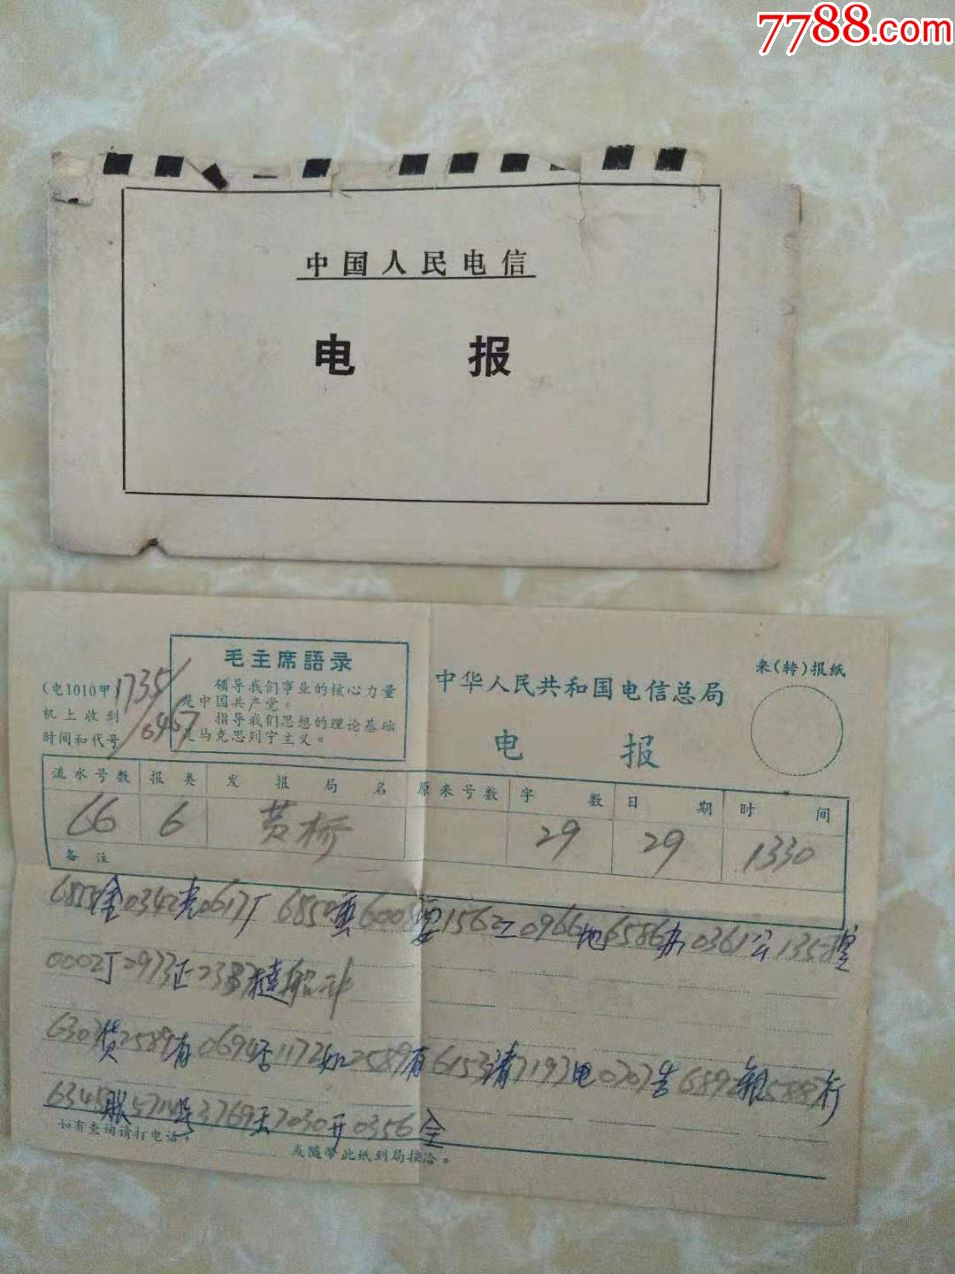 7788.com
中国人民电信
电 报
来(转)报纸
(电1010甲)
1735
机上收到
时间和代号
毛主席語录
领导我们事业的核心力量
是中国共产党。
指导我们思想的理论基础
是马克思列宁主义。
中华人民共和国电信总局
电 报
流水号数 报类 发报局名 原来号数 字数 日期 时间
66 6 黄桥 29 29 1330
备注
金0342光0617厂 6852 6003要1562工0966地6586办0361公1358
0002丁2973正
6303货2589有0694否1172如2589有6153请7193电0707告6892银5887行
号 开0356全
如有查询请打电话:
或随带此纸到局接洽。